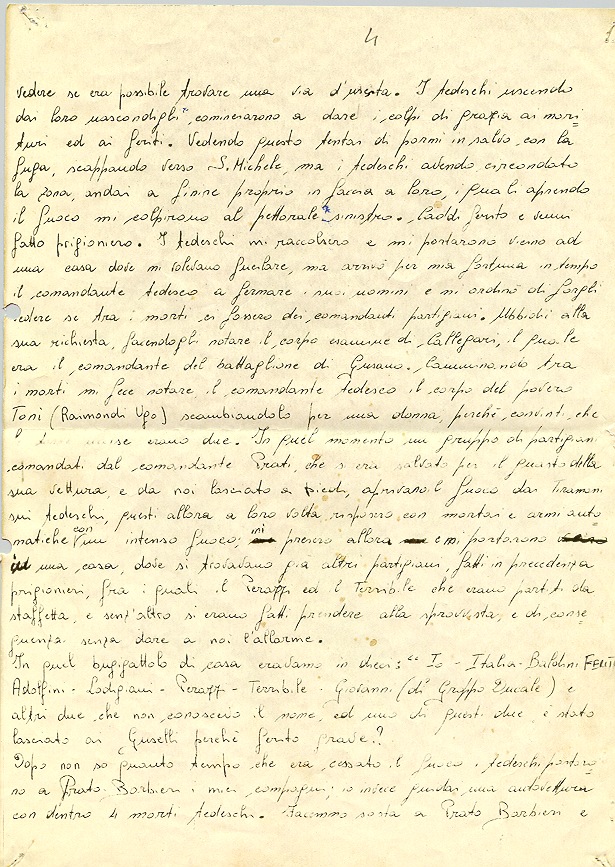 4
vedere se era possibile trovare una via d'uscita. I tedeschi uscendo
dai loro nascondigli, cominciarono a dare i colpi di grazia ai mori=
turi ed ai feriti. Vedendo questo tentai di pormi in salvo, con la
fuga, scappando verso S. Michele, ma i tedeschi avendo circondato
la zona, andai a finire proprio in faccia a loro, i quali aprendo
il fuoco mi colpirono al pettorale sinistro. Caddi ferito e venni
fatto prigioniero. I tedeschi mi raccolsero e mi portarono vicino ad
una casa dove mi volevano fucilare, ma arrivò per mia fortuna in tempo
il comandante tedesco a fermare i suoi uomini e mi ordinò di fargli
vedere se tra i morti ci fossero dei comandanti partigiani. Ubbidii alla
sua richiesta, facendogli notare il corpo esamine di Callegari, il quale
era il comandante del battaglione di Gusano. Camminando tra
i morti mi fece notare il comandante tedesco il corpo del povero
Toni (Raimondi Ugo) scambiandolo per una donna, perchè convinti che
erano due. In quel momento un gruppo di partigiani
comandati dal comandante Prati, che si era salvato per il guasto della
sua vettura, e da noi lasciato a piedi, aprivano il fuoco dai Tiramani
sui tedeschi, questi allora a loro volta risposero con mortai e armi auto
matiche con un intenso fuoco; mi presero allora e mi portarono
in una casa, dove si trovavano già altri partigiani, fatti in precedenza
prigionieri, fra i quali il Perazzi ed il Terribile che erano partiti da
staffetta, e senz'altro si erano fatti prendere alla sprovvista, e di conse=
guenza senza dare a noi l'allarme.
In quel bugigattolo di casa eravamo in dieci: "Io - Italia - Baldini
Adolfini - Lodigiani - Perazzi - Terribile - Giovanni (di Groppo Ducale) e
altri due che non conoscevo il nome, ed uno di questi due è stato
lasciato ai Guselli perchè ferito grave?
Dopo non so quanto tempo che era cessato il fuoco i tedeschi portaro=
no a Prato Barbieri i miei compagni; io invece guidai una autovettura
con dentro 4 morti tedeschi. Facemmo sosta a Prato Barbieri e